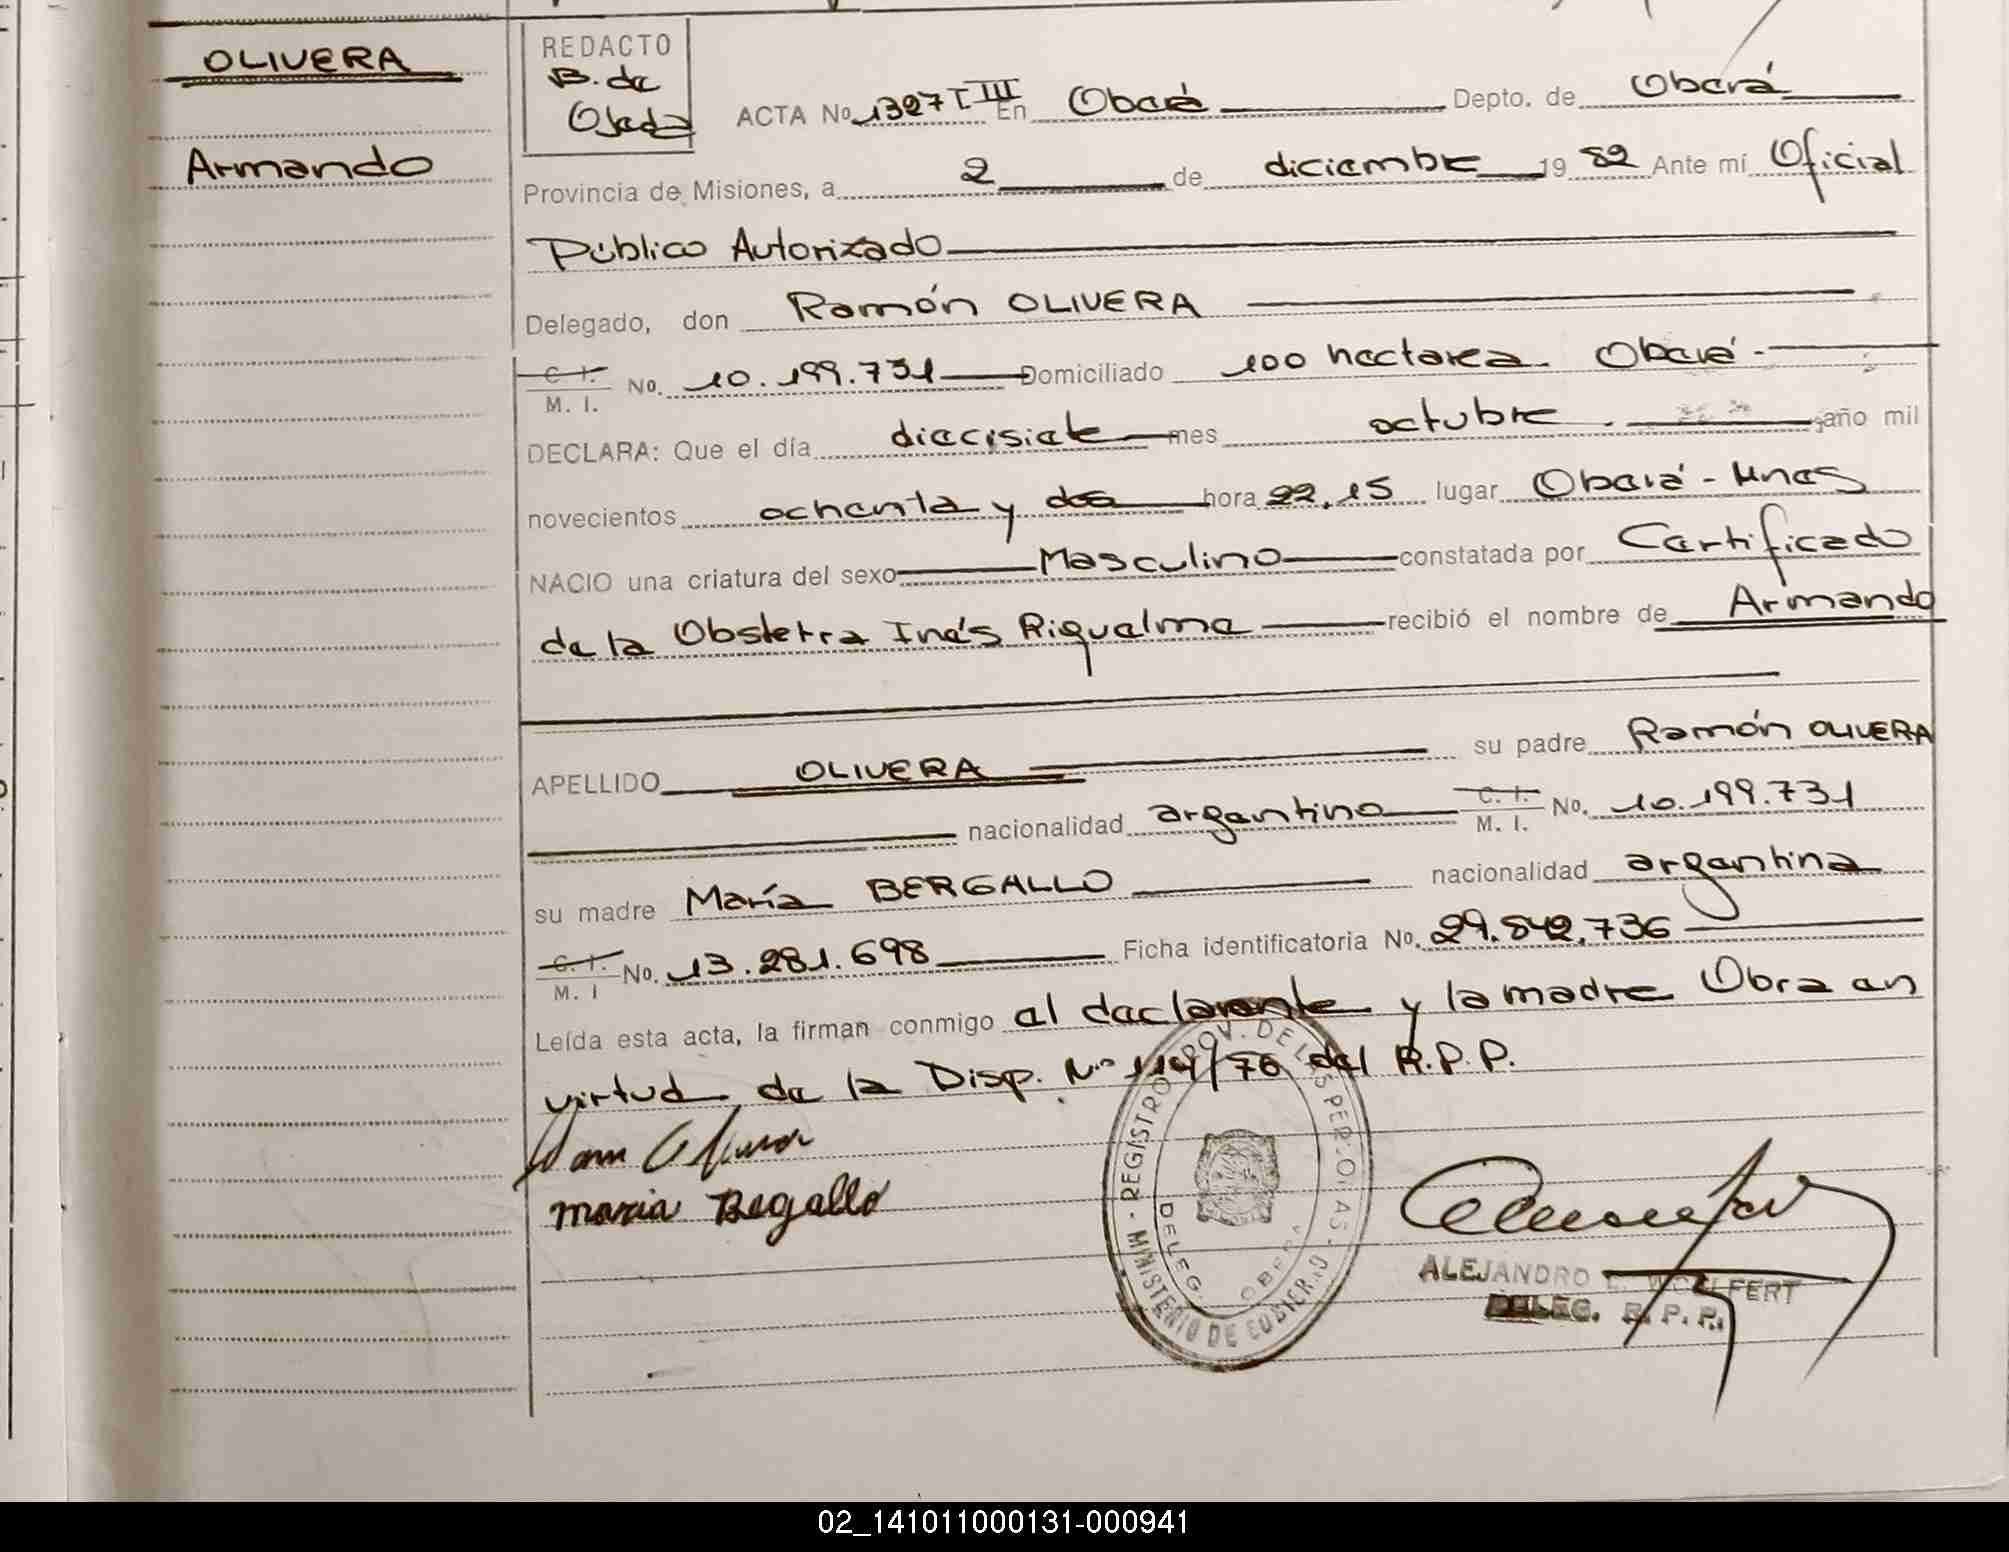 OLIVERA
Armando
REDACTO
B. de
Ojeda
ACTA No. 1327 T III En Oberá Depto. de Oberá
Provincia de Misiones, a 2 de diciembre 19 82 Ante mí Oficial
Público Autorizado
Delegado, don Ramón OLIVERA
C. I.
M. I. No. 10.199.731 Domiciliado 100 hectarea. Oberá.
DECLARA: Que el día diecisiete mes octubre. año mil
novecientos ochenta y dos hora 22,15 lugar Oberá - Mnes
NACIO una criatura del sexo Masculino constatada por Certificado
de la Obstetra Inés Riquelme recibió el nombre de Armando
APELLIDO OLIVERA su padre Ramón OLIVERA
nacionalidad argentino C. I.
M. I. No. 10.199.731
su madre María BERGALLO nacionalidad argentina
C. I.
M. I No. 13.281.698 Ficha identificatoria No. 29.842.736
Leída esta acta, la firman conmigo el declarante y la madre Obra en
virtud de la Disp. Nº 114/76 del R.P.P.
Olivera
maria Begallo
REGISTRO PROV. DE LAS PERSONAS
MINISTERIO DE GOBIERNO
DELEG. OBERA
ALEJANDRO E. WOLFERT
DELEG. R. P. P.
02_141011000131-000941